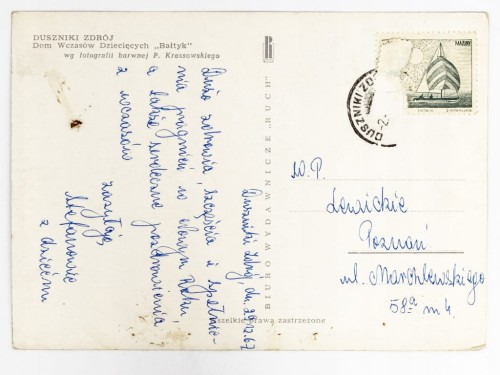 DUSZNIKI ZDRÓJ
Dom Wczasów Dziecięcych „Bałtyk"
wg fotografii barwnej P. Krassowskiego
Duszniki Zdrój, dn. 29.12.67
Dużo zdrowia, szczęścia i spełnie-
nia pragnień w Nowym Roku,
a także serdeczne pozdrowienia
z wczasów
zasyłają
Stefanowie
z dziećmi
BIURO WYDAWNICZE „RUCH"
Wszelkie prawa zastrzeżone
MAZURY
DUSZNIKI ZD
W.P.
Lewickie
Poznań
ul. Marchlewskiego
58a m 4.